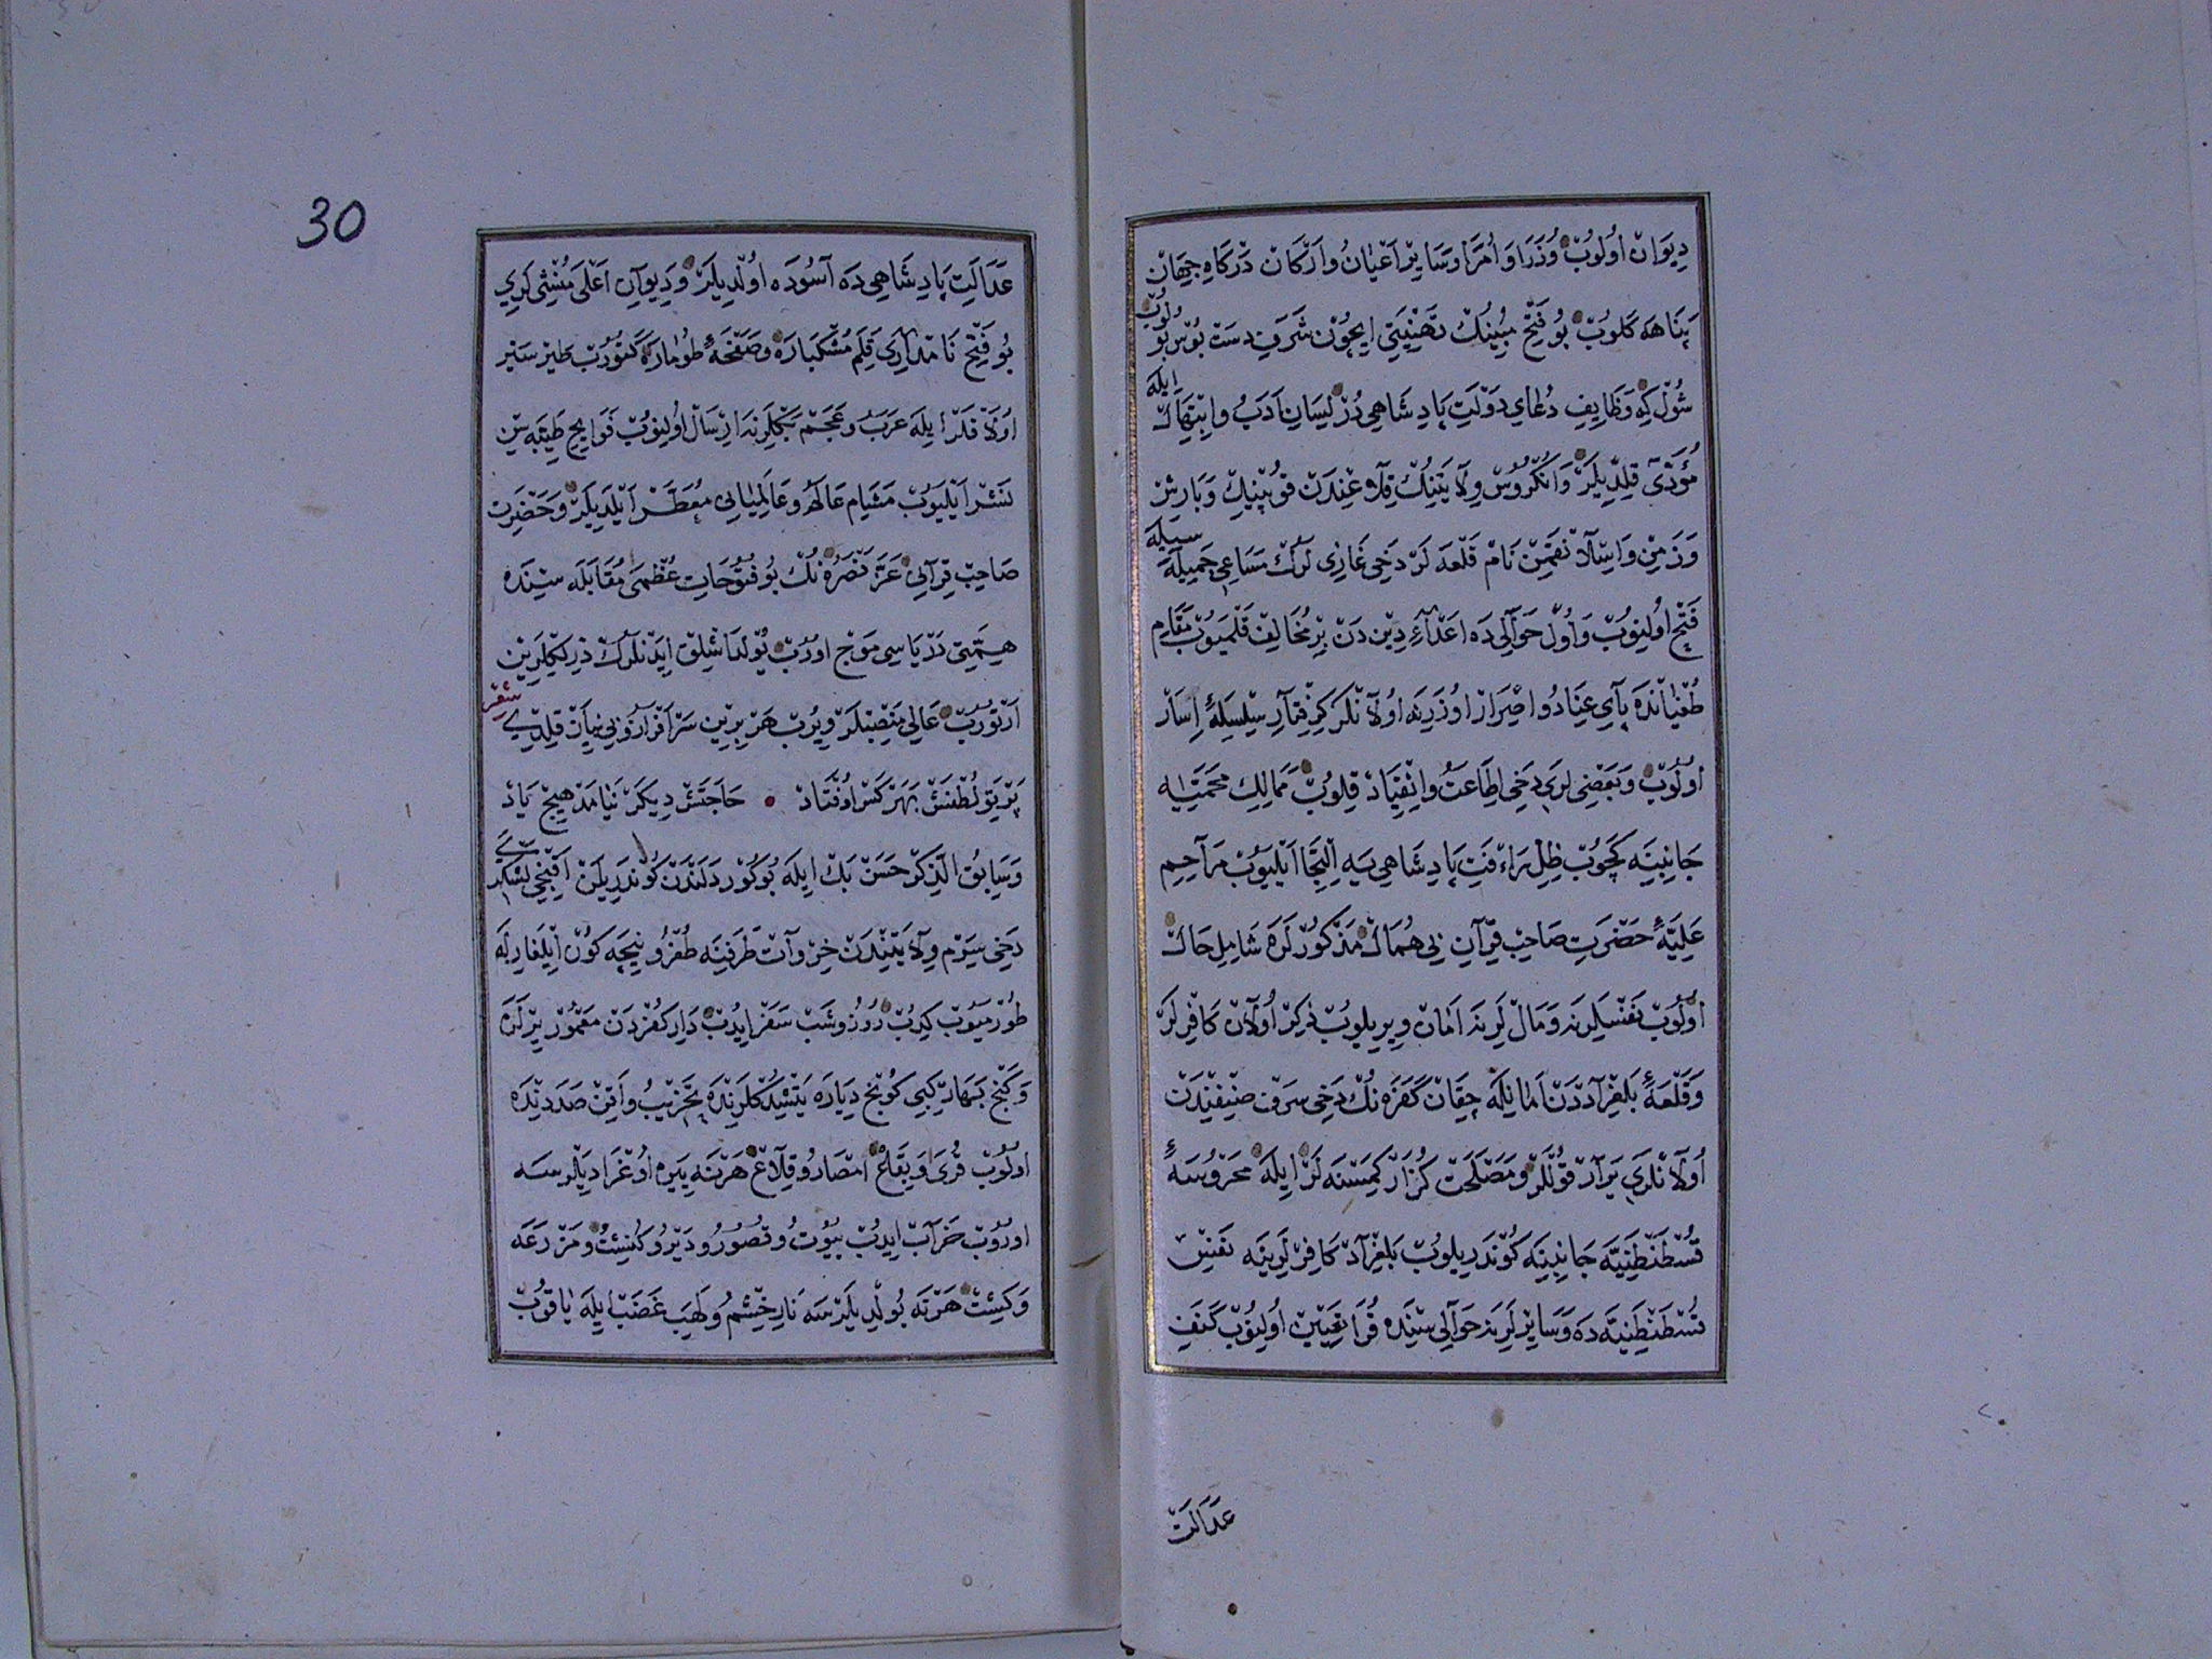 دِيوَانْ اُولُوبْ وُزَرَا وَ اُمَرَا وَسَايِرْ اَعْيَانُ وَاَرْكَانْ دَرْكَاهِ جِهَانْ
پَنَاهَه كَلُوبْ بُو فَتْحِ مُبِينُكْ تَهْنِيَتِي اِيچُونْ شَرَفِ دَسْت بُوسْ بُولُوبْ
شُولْ كِه وَظَايِفِ دُعَاي دَوْلَتِ پَادِشَاهِي دُرْ لِسَانِ اَدَبُ وَابْتِهَالْ اِيلَه
مُؤَدّٰى قِلْدِيلَرْ وَانْكُرُوسْ وِلَايَتِنُكْ قِلَاعِنْدَنْ قُوپِينِكْ وَبَارِشْ
وَزَمِنْ وَاسْلَانْقَمِنْ نَامْ قَلْعَه لَرْ دَخِي غَازِي لَرُكْ مَسَاعِي جَمِيلَه سِيلَه
فَتْح اُولِنُوبْ وَاُولْ حَوَالِي دَه اَعْدَآءِ دِينْ دَنْ بِرْ مُخَالِفْ قَلْمَيُوبْ مَقَامِ
طُغْيَانْدَه پَاي عِنَادُ وَاصْرَارْ اُوزَرِنَه اُولَانْلَرْ كِرِفْتَارِ سِلْسِلَهٔ اِسَارْ
اُولُوبْ وَبَعْضِي لَرِي دَخِي اِطَاعَتُ وَانْقِيَادْ قِلُوبْ مَمَالِكِ مَحْمِيَّه
جَانِبِنَه كَچُوبْ ظِلِّ رَأْفَتِ پَادِشَاهِي يَه اِلْتِجَا اَيْلَيُوبْ مَرَاحِمِ
عَلِيَّهٔ حَضْرَتِ صَاحِبْ قِرَانِ بِي هُمَالْ مَذْكُورْلَرَه شَامِلِ حَالْ
اُولُوبْ نَفْسلَرِنَه وَمَالْ لَرِنَه اَمَانْ وِيرِيلُوبْ ذِكِرْ اُولَانْ كَافِرْ لَرْ
وَقَلْعَهٔ بَلِغْرَادْدَنْ اَمَانِيلَه چِقَانْ كَفَرَه نُكْ دَخِي سَرْف صِنْفِنْدَنْ
اُولَانْلَرِي يَرَارْ قُوللَرْ وَمَصْلَحَتْ كُزَارْ كِمْسَنَه لَرْ اِيلَه مَحْرُوسَهٔ
قُسْطَنْطِنِيَّه جَانِبِنَه كُونْدَرِيلُوبْ بَلِغْرَادْ كَافِرْ لَرِينَه نَفْسِ
قُسْطَنْطِنِيَّه دَه وَسَايِرْ لَرِنَه حَوَالِي سِنْدَه قُرَا تَعْيِينْ اُولِنُوبْ كَنَفِ
عَدَالَتْ
30
عَدَالَتِ پَادِشَاهِي دَه آسُودَه اُولْدِيلَرْ وَدِيوَانِ اَعْلَى مُنْشِي لَرِي
بُو فَتْح نَامَه لَرِي قَلَمِ مُشْكْبَارَه وَصَفْحَهٔ طُومَارَه كَتُورُبْ طَيْر سَيْر
اُولَاقْلَرْ اِيلَه عَرَبُ وَعَجَمْ بَكْلَرِنَه اِرْسَالْ اُولِنُوبْ فَوَايِحِ طَيِّبَه سِنْ
نَشْر اَيْلَيُوبْ مَشَامِ عَالَمُ وَعَالَمِيَانِي مُعَطَّرْ اَيْلَدِيلَرْ وَحَضْرَتِ
صَاحِبْ قِرَانِي عَزَّ نَصْرُهُ نُكْ بُو فُتُوحَاتِ عُظْمَى مُقَابَلَه سِنْدَه
هِمَّتِي دَرْيَاسِي مَوْج اُورُبْ يُولْدَاشْلِقْ اِيدَنْلَرُكْ دِرْلِكْلَرِينْ
اَرْتُورُبْ عَالِي مَنْصِبْلَرْ وِيرُبْ هَرْ بِرِينْ سَرْ اَفْرَازُ وبي نِيَازْ قِلْدِي شعر
پَرْتَوِ لُطْفَشْ بَهَرْ كَسْ اُوفْتَادْ ● حَاجَتَشْ دِيكَرْ نَيَامَدْ هِيچْ يَادْ
وَسَابِقُ الذِّكْر حَسَنْ بَكْ اِيلَه بُوكُورْدَلَنْدَنْ كُونْدَرِيلَنْ اَقِنْجِي لَشْكَرِي
دَخِي سِيرْم وِلَايَتِنْدَنْ خِرْوَاتْ طَرَفِنَه طُقُزُ نِيچَه كُونْ اِيلْغَارِيلَه
طُورْمَيُوبْ كِيدُبْ رُوزُ وشَبْ سَفَر اِيدُبْ دَارِ كُفْردَنْ مَعْمُورْ يِرْلَرَه
وَكَنْجِ بَهَارْ كِبِي كُوينج دِيَارَه يَتْشِدُكْلَرِنْدَه تَخْرِيبُ وَاَقِنْ صَدَدِنْدَه
اُولُوبْ قُرَى وَبِقَاعْ اَمْصَارُ وقِلَاعْ هَرْ نَه يِيرَه اُوغْرَادِيلَرسَه
اُورُوبْ خَرَابْ اِيدُبْ بُيُوتُ وقُصُورُ ودَيْرُ وكُنِشْتُ ومَزْرَعَه
وَكِشْتْ هَرْ نَه بُولْدِيلَرسَه نَارِ خِشْمُ ولَهَبِ غَضَبْ اِيلَه يَاقُوبْ